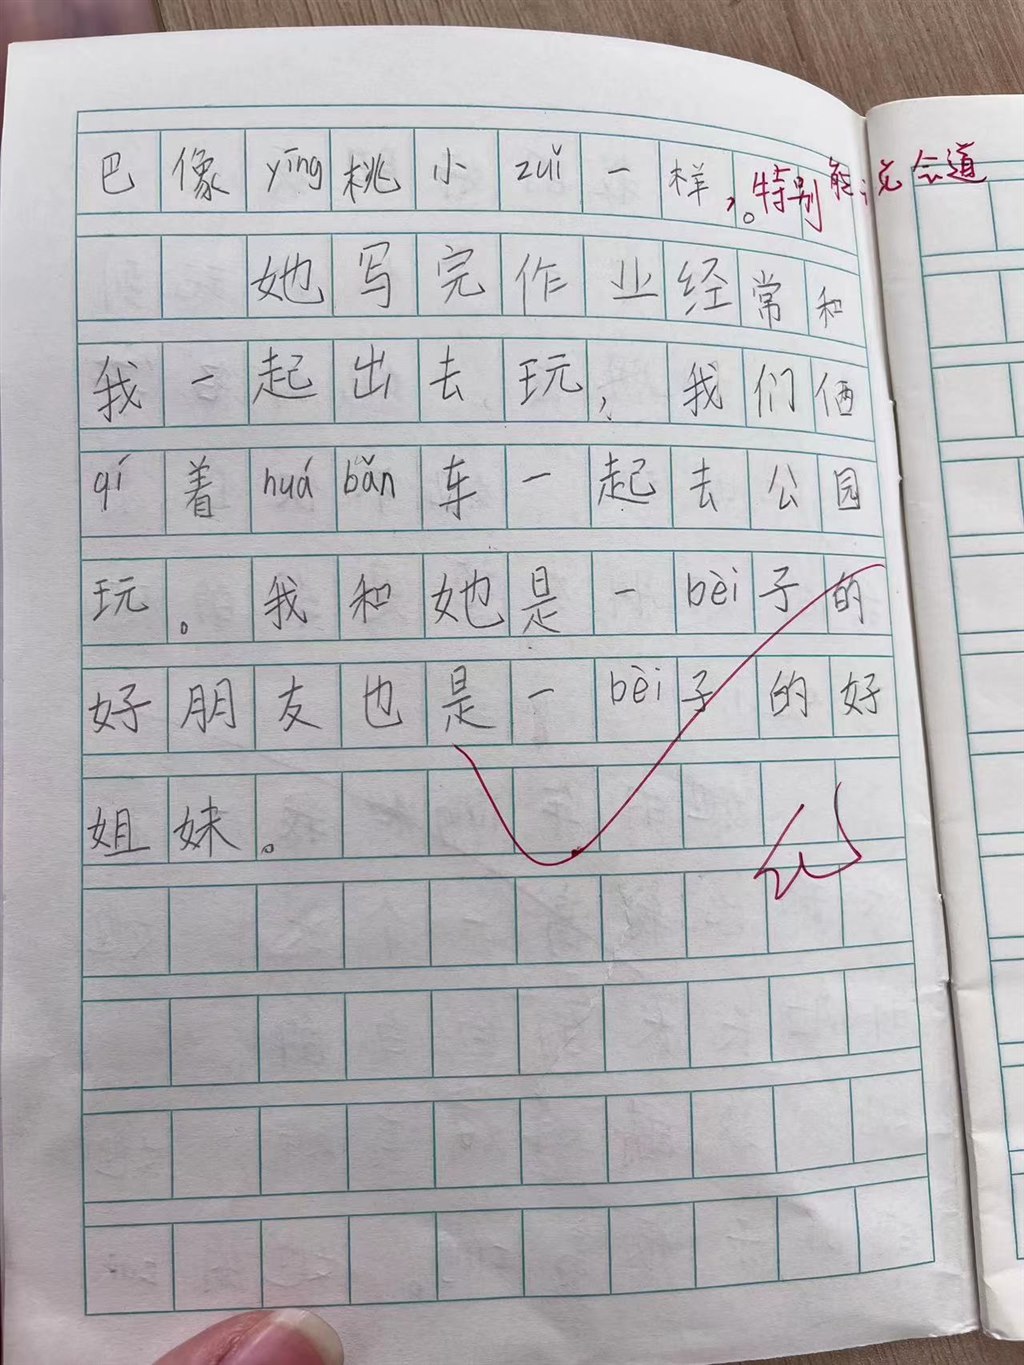 巴像yīng桃小zuǐ一样，。特别能说会道
她写完作业经常和
我一起出去玩，我们俩
qí着huábǎn车一起去公园
玩。我和她是一bèi子的
好朋友也是一bèi子的好
姐妹。